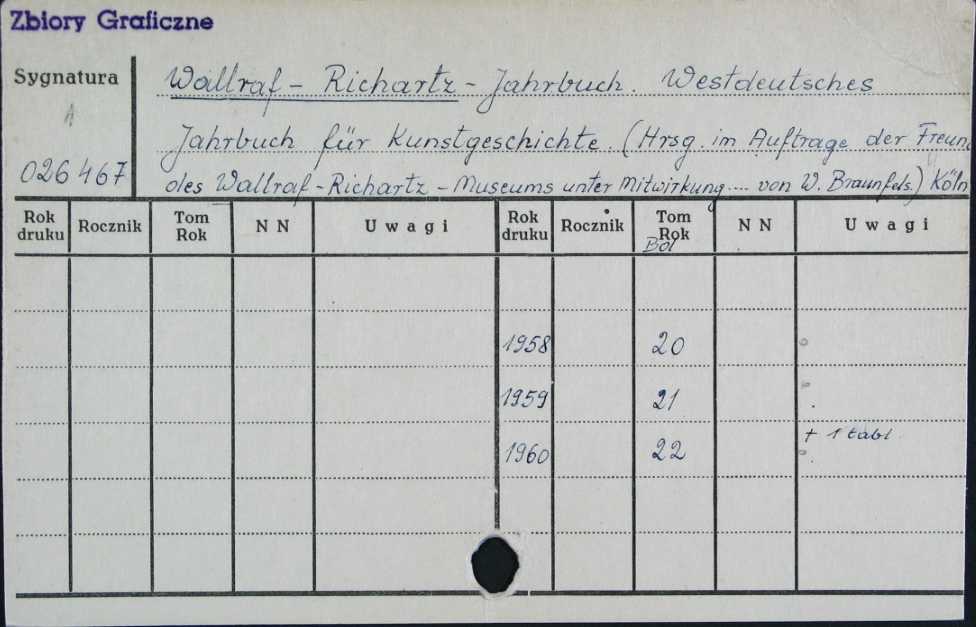 Zbiory Graficzne
Sygnatura
Wallraf - Richartz - Jahrbuch. Westdeutsches
Jahrbuch für Kunstgeschichte. (Hrsg. im Auftrage der Freun
026 467
des Wallraf - Richartz - Museums unter Mitwirkung .... von W. Braunfels.) Köln
Rok druku Rocznik Tom Rok N N Uwagi Rok druku Rocznik Tom Rok N N Uwagi
Bd
1958 20
1959 21
+ 1 tabl.
1960 22